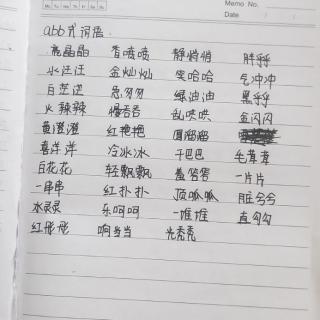 Mo Tu We Th Fr Sa Su
Memo No.
Date / /
abb式词语
亮晶晶 香喷喷 静悄悄 胖乎乎
水汪汪 金灿灿 笑哈哈 气冲冲
白茫茫 急匆匆 绿油油 黑乎乎
火辣辣 乱哄哄 金闪闪
黄澄澄 红艳艳 圆溜溜
喜洋洋 冷冰冰 干巴巴 毛茸茸
白花花 轻飘飘 羞答答 一片片
一串串 红扑扑 顶呱呱 脏兮兮
水灵灵 乐呵呵 一堆堆 直勾勾
红彤彤 响当当 光秃秃